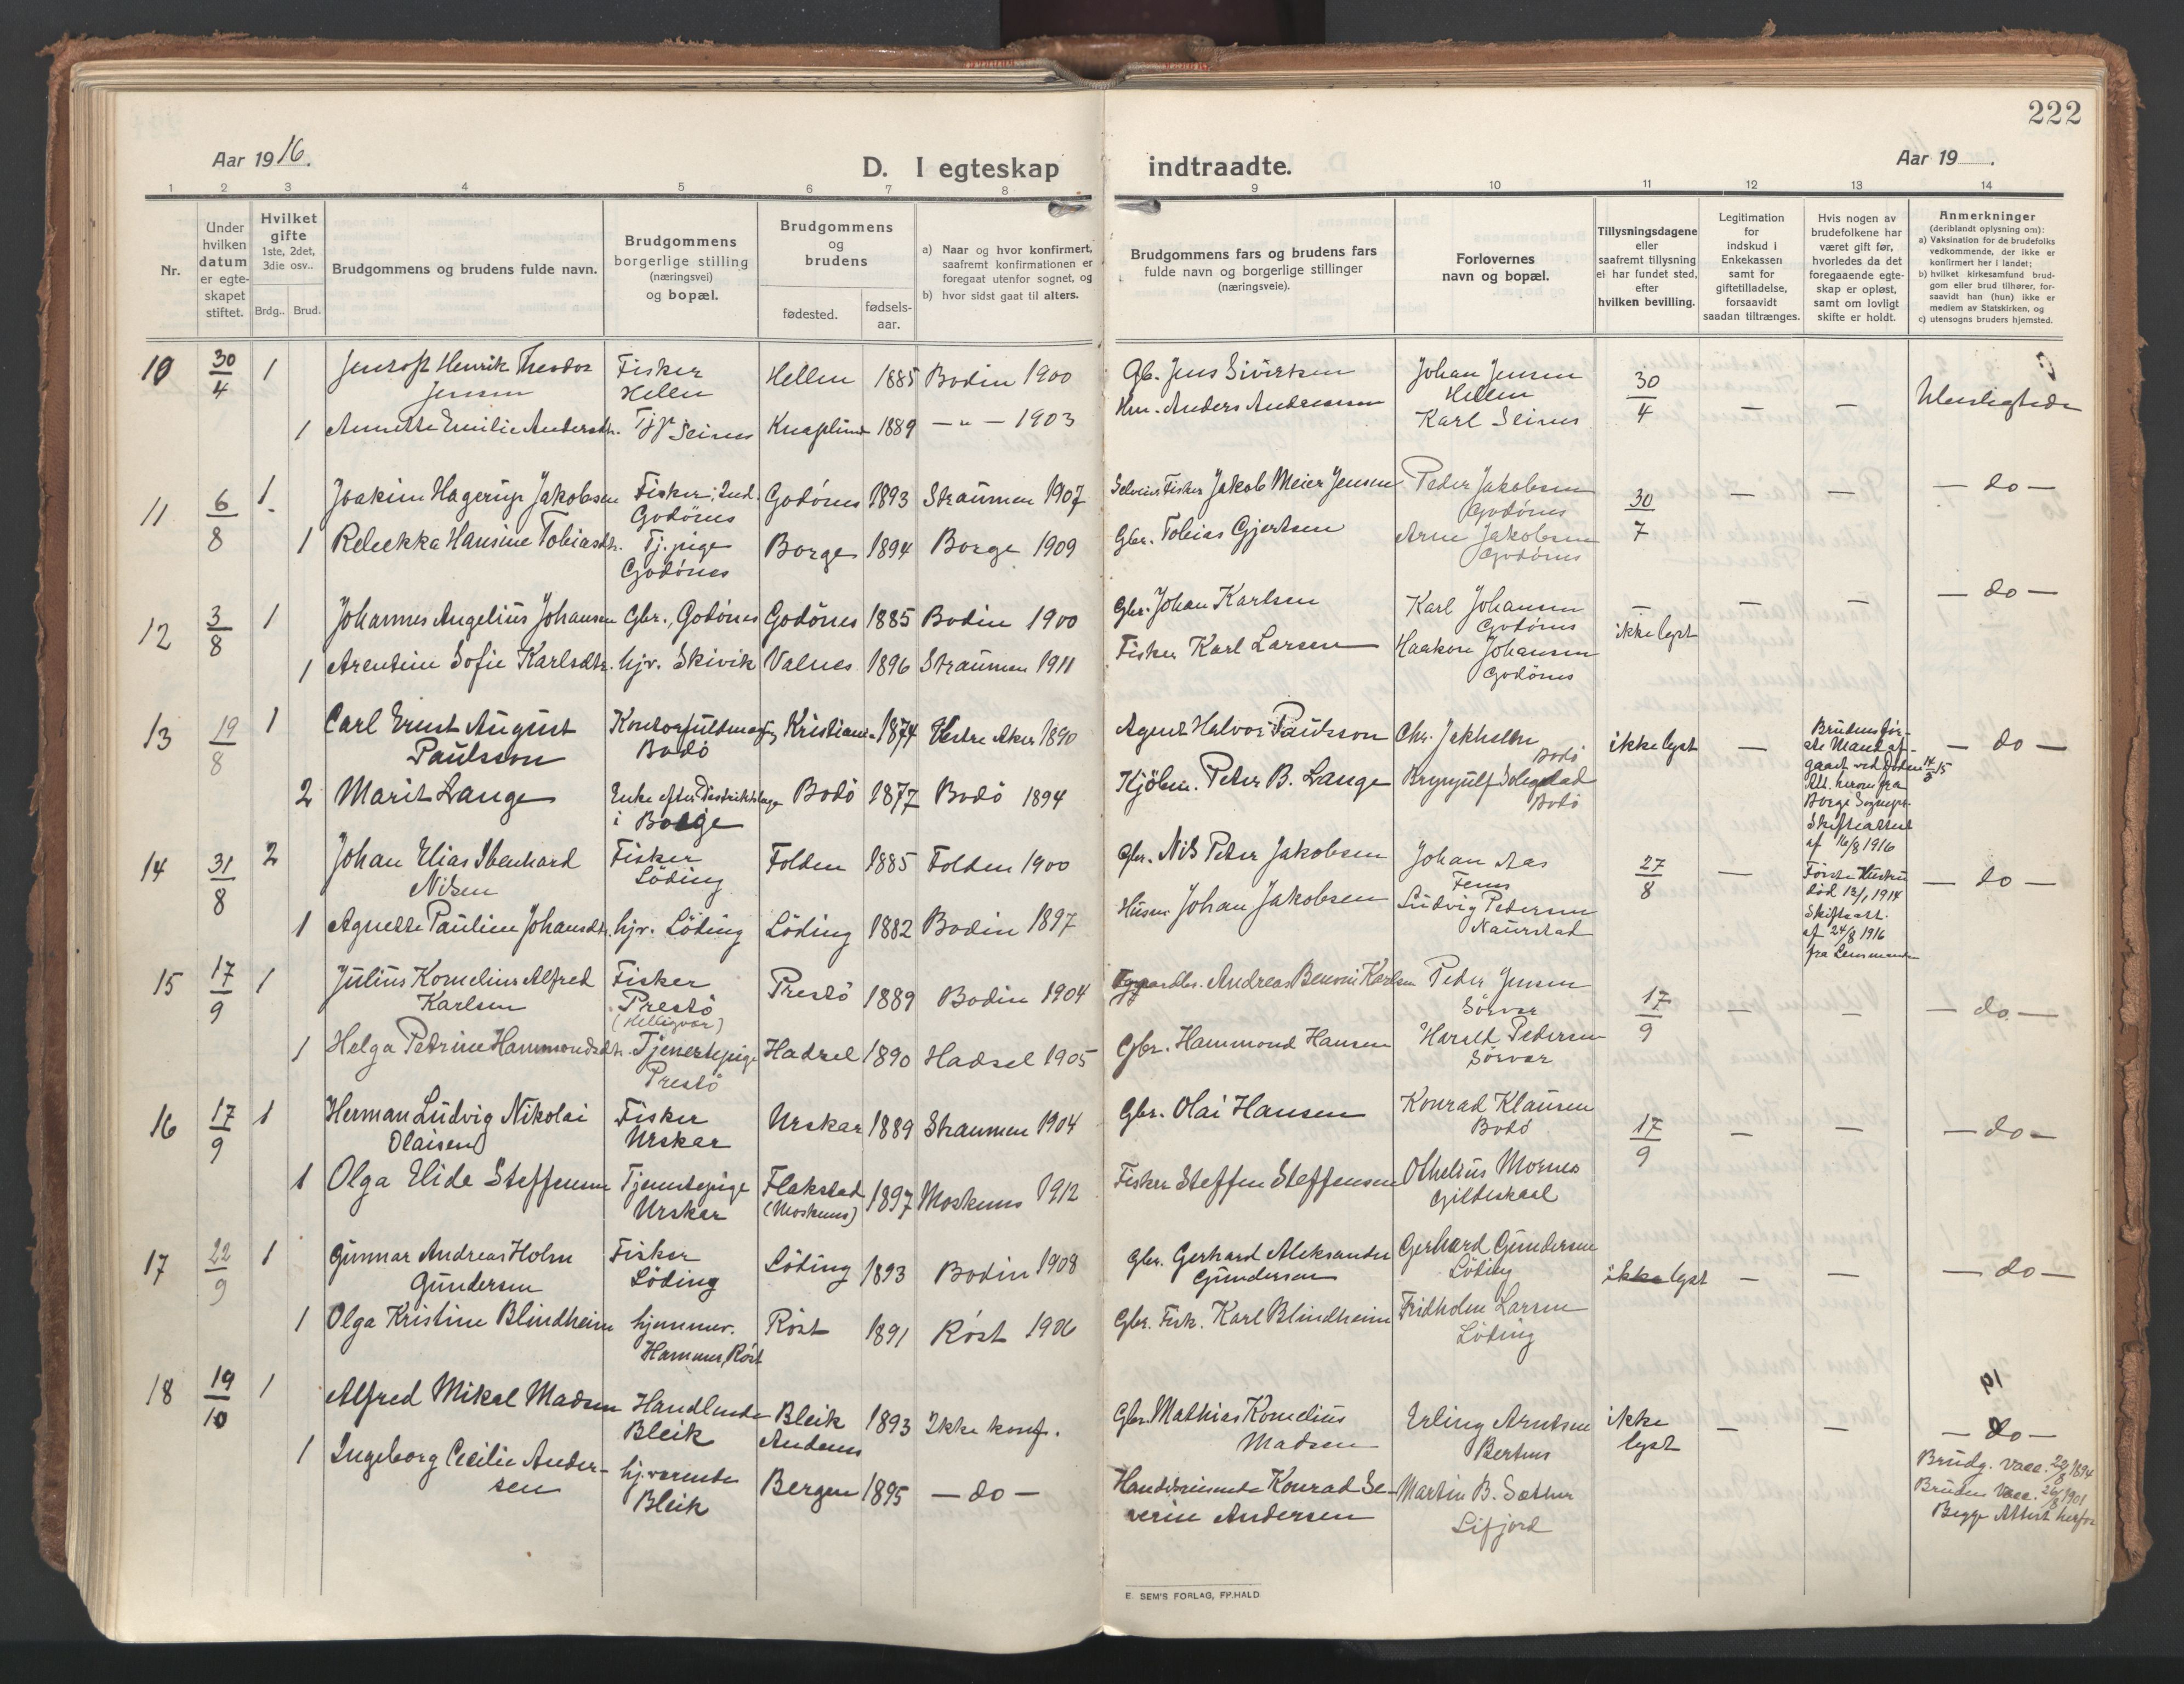 222
Aar 1916.
D. I egteskap indtraadte.
Aar 19 .
1 2 3 4 5 6 7 8 9 10 11 12 13 14
Nr.
Under hvilken datum er egte-skapet stiftet.
Hvilket gifte 1ste, 2det, 3die osv..
Brdg.. Brud.
Brudgommens og brudens fulde navn.
Brudgommens borgerlige stilling (næringsvei) og bopæl.
Brudgommens og brudens
fødested.
fødsels-aar.
a) Naar og hvor konfirmert, saafremt konfirmationen er foregaat utenfor sognet, og
b) hvor sidst gaat til alters.
Brudgommens fars og brudens fars fulde navn og borgerlige stillinger (næringsveie).
Forlovernes navn og bopæl.
Tillysningsdagene eller saafremt tillysning ei har fundet sted, efter hvilken bevilling.
Legitimation for indskud i Enkekassen samt for giftetilladelse, forsaavidt saadan tiltrænges.
Hvis nogen av brudefolkene har været gift før, hvorledes da det foregaaende egte-skap er opløst, samt om lovligt skifte er holdt.
Anmerkninger (deriblandt oplysning om):
a) Vaksination for de brudefolks vedkommende, der ikke er konfirmert her i landet;
b) hvilket kirkesamfund brud-gom eller brud tilhører, for-saavidt han (hun) ikke er medlem av Statskirken, og
c) utensogns bruders hjemsted.
10 30/4 1 Jentoft Henrik Theodor Fisker Hellen 1885 Bodin 1900 Gb. Jens Sivertsen Johan Jensen 30/4 — — Uberigtede
Jensen Hellen Hellen
1 Annette Emilie Andersdtr. Tjp. Seines Knaplund 1889 — " — 1903 Anders Andreassen Karl Seines
11 6/8 1. Joakim Hagerup Jakobsen Fisker, Ind. Godönes 1893 Straumen 1907 Selveier Fisker Jakob Meier Jensen Peder Jakobsen 30/7 — — — do —
Godönes Godönes
1 Rebekka Hansine Tobiasdtr. Tj. pige Borge 1894 Borge 1909 Gbr. Tobias Gjertsen Arne Jakobsen
Godönes Godönes
12 3/8 1 Johannes Angelius Johansen Gbr., Godönes Godönes 1885 Bodin 1900 Gbr. Johan Karlsen Karl Johansen — — — — do —
Godönes ikke lyst
1 Arentine Sofie Karlsdtr. hjv. Skivik Valnes 1896 Straumen 1911 Fisker Karl Larsen Haakon Johansen
Godönes
13 19/8 1 Carl Ernst August Kontorfuldmægtig Kristiania 1874 Vestre Aker 1890 Agent Halvor Paulsson Chr. Jakhelln ikke lyst — Brudens før- — do —
Paulsson Bodö Bodö ste Mand af-
gaaet ved Döden 14/3 15
2 Marit Lange Enke efter Distriktslæge Bodö 1877 Bodö 1894 Kjöbm. Peter B. Lange Brynjulf Bodö
i Borge Att. herom fra
Borge Sognepr.
Skifteattest
af 16/8 1916
14 31/8 2 Johan Elias Ibenhard Fisker Folden 1885 Folden 1900 Gbr. Nils Peter Jakobsen Johan Aas 27/8 — Förste Hustru — do —
Nilsen Löding Fenes död 13/1 1914
1 Agnette Pauline Johansdtr. hjv. Löding Löding 1882 Bodin 1897 Husm. Johan Jakobsen Ludvig Pedersen Skifteatt.
Naurstad af 24/8 1916
fra Lensmanden
15 17/9 1 Julius Kornelius Alfred Fisker Prestö 1889 Bodin 1904 Andreas Benoni Karlsen Peder Jensen 17/9 — — — do —
Karlsen Prestö Sörvær
(Helligvær)
1 Helga Petrine Hammondsdtr. Tjenestepige Hadsel 1890 Hadsel 1905 Gbr. Hammond Hansen Harald Pedersen
Prestö Sörvær
16 17/9 1 Herman Ludvig Nikolai Fisker Urskar 1889 Straumen 1904 Gbr. Olai Hansen Konrad Klausen 17/9 — — — do —
Olaisen Urskar Bodö
1 Olga Elide Steffensen Tjenestepige Flakstad 1897 Moskenes 1912 Fisker Steffen Steffensen Othelius Mornes
Urskar (Moskenes) Gildeskaal
17 22/9 1 Gunnar Andreas Holm Fisker Löding 1893 Bodin 1908 Gbr. Gerhard Aleksander Gerhard Gundersen ikke lyst — — — do —
Gundersen Löding Gundersen Löding
1 Olga Kristine Blindheim hjemmev. Röst 1891 Röst 1906 Gbr. Fisk. Karl Blindheim Fridholm Larsen
Hammer, Röst Löding
18 19/10 1 Alfred Mikal Madsen Handlende Bleik 1893 Ikke konf. Gbr. Mathias Kornelius Erling Arntsen ikke — — — do —
Bleik Andenes Madsen Bertnes lyst
1 Ingeborg Cecilie Ander- hj.værende Bergen 1895 — do — Konrad Se- Martin B. Sæther Brudg. Vacc. 1894
sen Bleik verin Andersen Lifjord Bruden Vacc. 26/8 1901
Begge Attest herfor
E. SEM'S FORLAG, FR.HALD